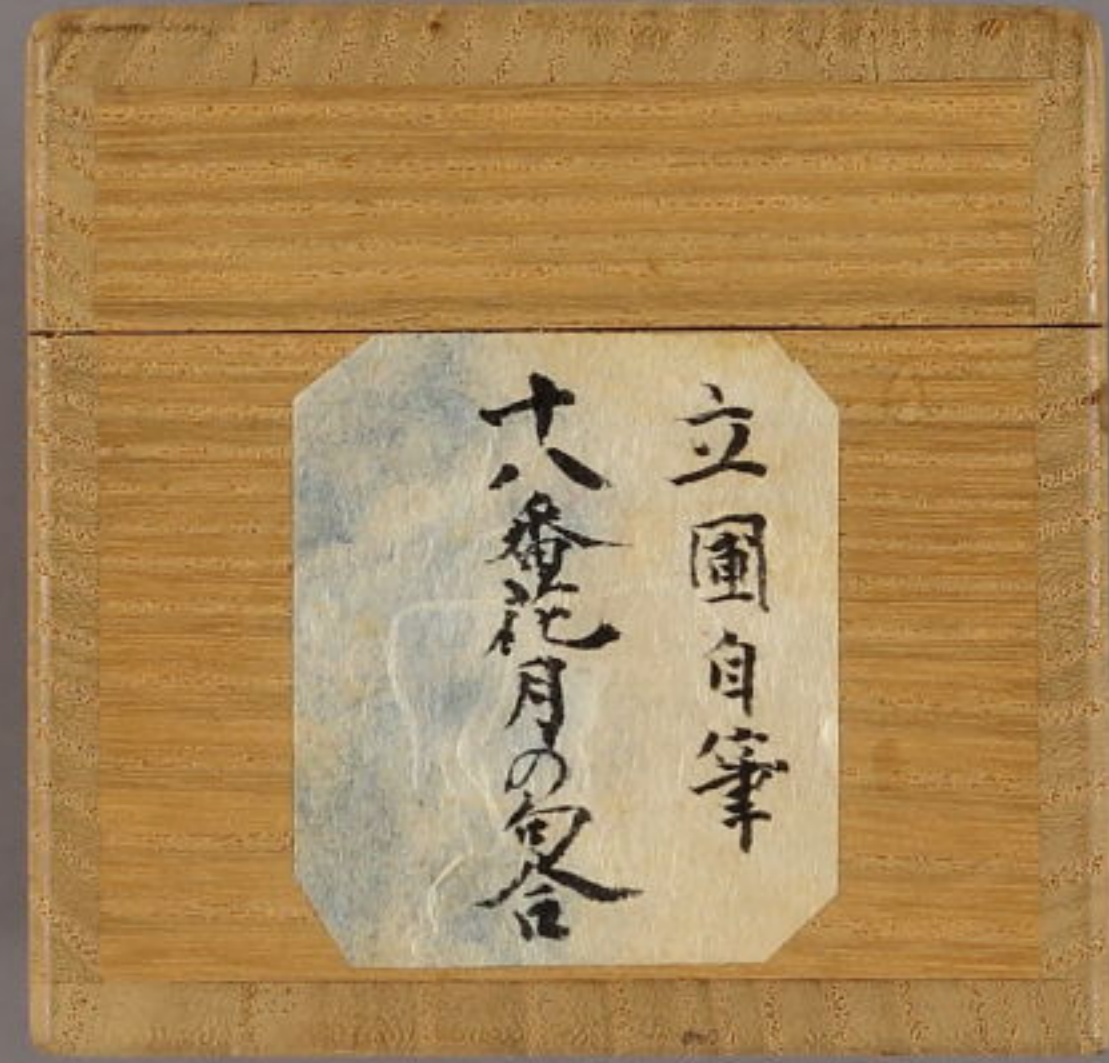 立圃自筆
十八番花月の句合